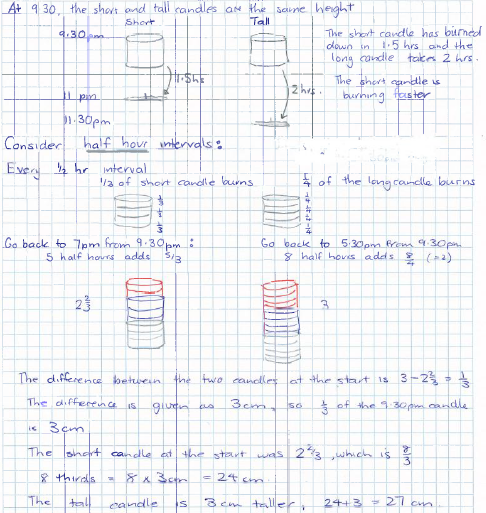 At 9.30, the short and tall candles are the same height
Short
Tall
9.30pm
1.5hs
11 pm
11.30pm
2hrs.
The short candle has burned
down in 1.5 hrs and the
long candle takes 2 hrs.
The short candle is
burning faster
Consider half hour intervals:
Every 1/2 hr interval
1/3 of short candle burns
1/4 of the long candle burns
1/3
1/3
1/3
1/4
1/4
1/4
1/4
Go back to 7pm from 9.30pm:
5 half hours adds 5/3
Go back to 5:30pm from 9.30pm
8 half hours adds 8/4 (=2)
2 2/3
3
The difference between the two candles at the start is 3 - 2 2/3 = 1/3
The difference is given as 3cm, so 1/3 of the 9.30pm candle
is 3cm
The short candle at the start was 2 2/3, which is 8/3
8 thirds = 8 x 3cm = 24cm.
The tall candle is 3cm taller, 24+3 = 27 cm.